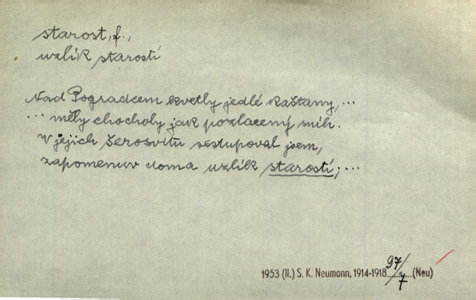 starost, f.,
uzlík starostí
Nad Pogradcem kvetly jedlé kaštany,...
... měly chocholy jak pozlacený sníh.
V jejich šerosvitu sestupoval jsem,
zapomenuv doma uzlík starostí;...
1953 (II.) S. K. Neumann, 1914-1918 97/7 (Neu)